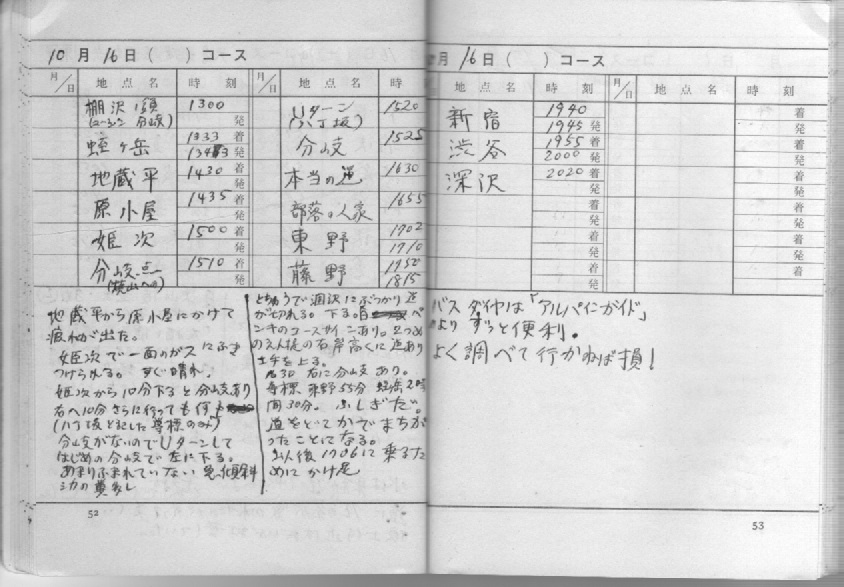 10月16日( )コース
月/日 地点名 時刻 月/日 地点名 時
棚沢ノ頭 1300
発
蛭ヶ岳 1333 着
発
地蔵平 1430 着
発
原小屋 1435 着
発
姫次 1500 着
発
分岐点 1510 着
発
Uターン 1520
(八丁坂)
分岐 1525
本当の道 1630
部落の人家 1655
東野 1702
1710
藤野 1750
1815
地蔵平から原小屋にかけて
疲れが出た。
姫次で一面のガスにふき
つけられる。すぐ晴れ。
姫次から10分下ると分岐あり
右へ10分さらに行っても何も
(八丁坂と記した導標のみ)
分岐がないのでUターンして
はじめの分岐で左に下る。
あまりふまれていない 急
シカの糞多し
とちゅうで涸沢にぶつかり道
が切れる。下る。 ペ
ンキのコースサインあり。2つめ
のえん堤の右岸高くに道あり
土手を上る。
右に分岐あり。
導標 東野55分 2時
間30分。ふしぎだ。
道をどこかでまちが
ったことになる。
以後1706に乗るた
めにかけ足
52
月16日( )コース
月/日 地点名 時刻 月/日 地点名 時刻
新宿 1940
1945 発
渋谷 1955 着
2000 発
深沢 2020 着
発
着
発
着
発
着
発
着
発
着
発
着
発
着
発
着
発
着
発
バスダイヤは「アルパインガイド」
より ずっと便利。
よく調べて行かねば損!
53